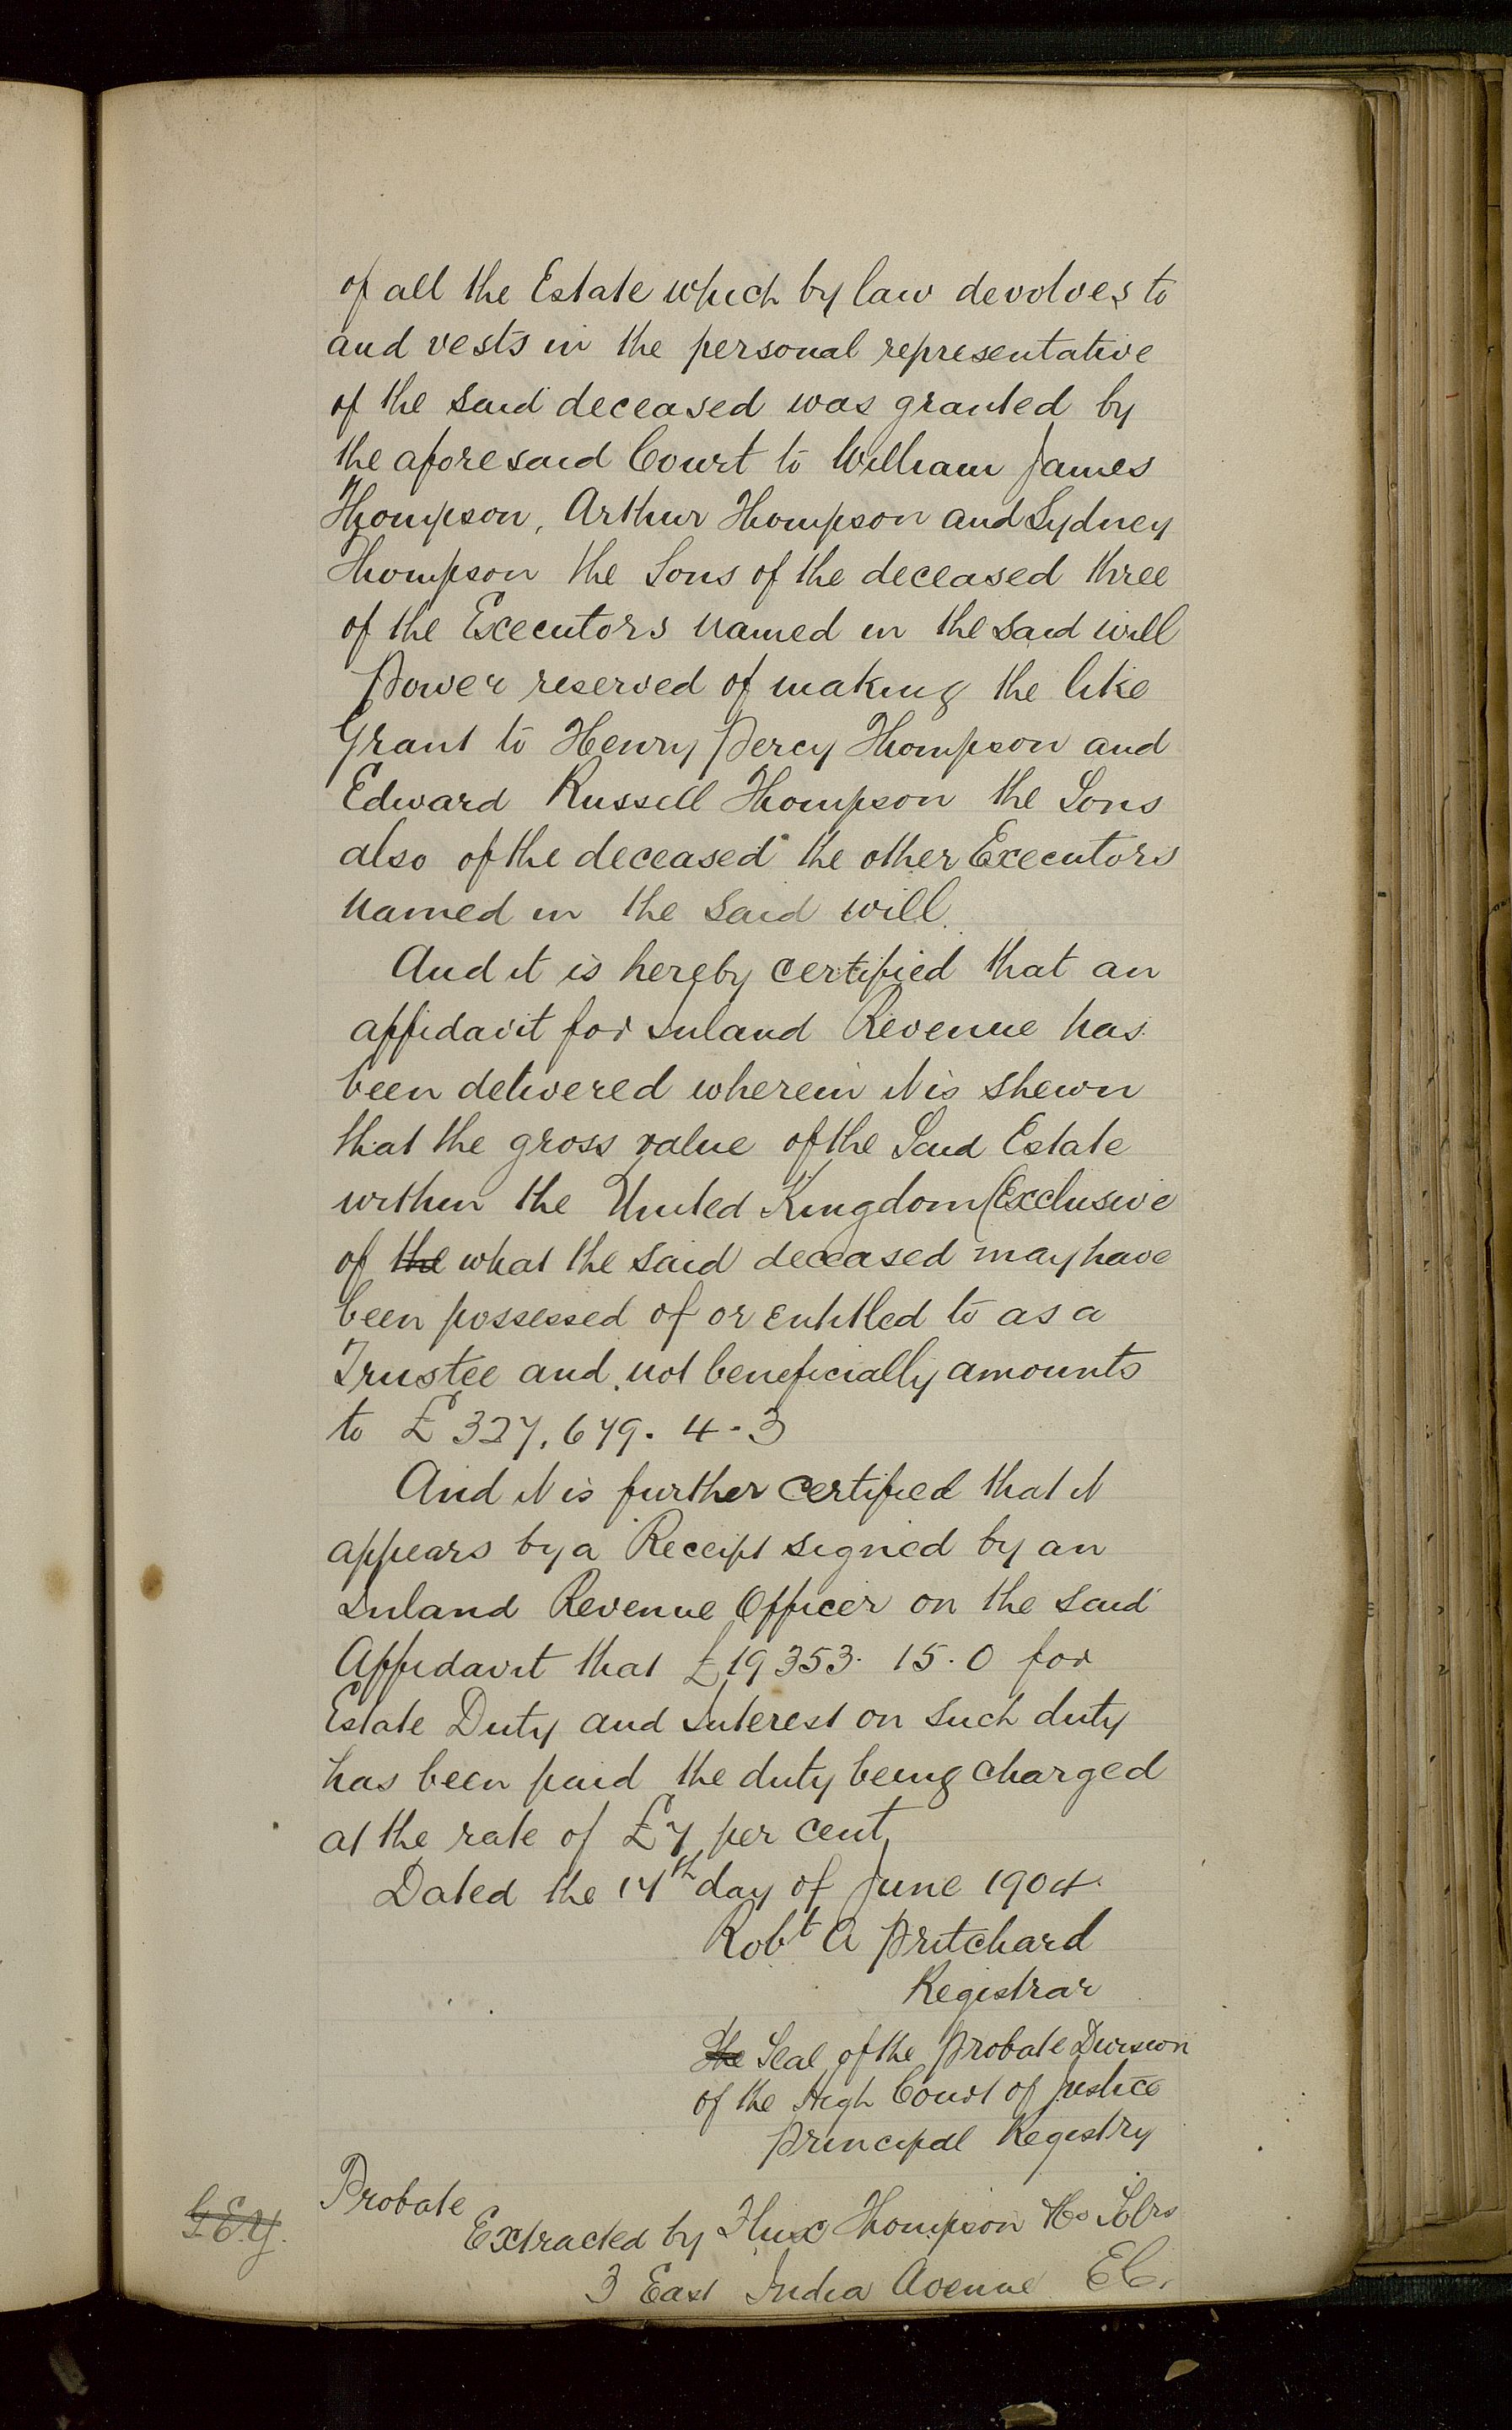 of all the Estate which by law devolves to
and vests in the personal representative
of the said deceased was granted by
the aforesaid Court to William James
Thompson, Arthur Thompson and Sydney
Thompson the Sons of the deceased three
of the Executors named in the said will
Power reserved of making the like
Grant to Henry Percy Thompson and
Edward Russell Thompson the Sons
also of the deceased the other Executors
named in the said will.
And it is hereby certified that an
affidavit for Inland Revenue has
been delivered wherein it is shewn
that the gross value of the Said Estate
within the United Kingdom (Exclusive
of the what the said deceased may have
been possessed of or entitled to as a
Trustee and not beneficially amounts
to £327,679. 4-3
And it is further certified that it
appears by a Receipt signed by an
Inland Revenue Officer on the said
Affidavit that £19353. 15. 0 for
Estate Duty and Interest on such duty
has been paid the duty being charged
at the rate of £7 per cent
Dated the 17th day of June 1904.
Robt A Pritchard
Registrar
The Seal of the Probate Division
of the High Court of Justice
Principal Registry
Probate
Extracted by Flux Thompson & Co Solrs
3 East India Avenue E.C.